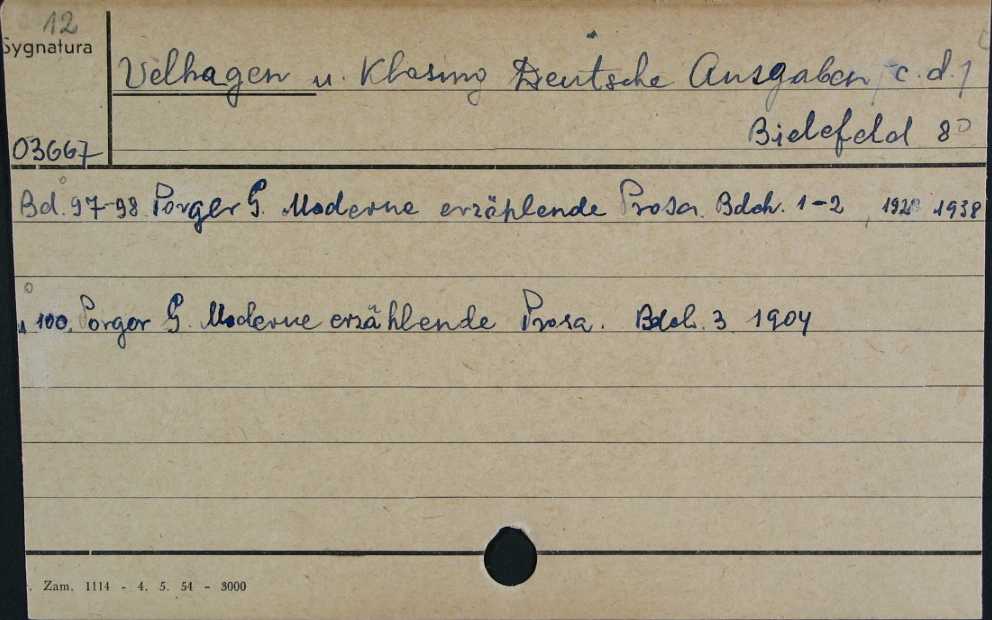 12
Sygnatura
Velhagen u. Klasing Deutsche Ausgaben / c. d. /
Bielefeld 8°
03667
Bd. 97-98 Porger G. Moderne erzählende Prosa. Bdch. 1-2, 1928 1938
" 100. Porger G. Moderne erzählende Prosa. Bdch. 3 1904
Zam. 1114 - 4. 5. 54 - 3000